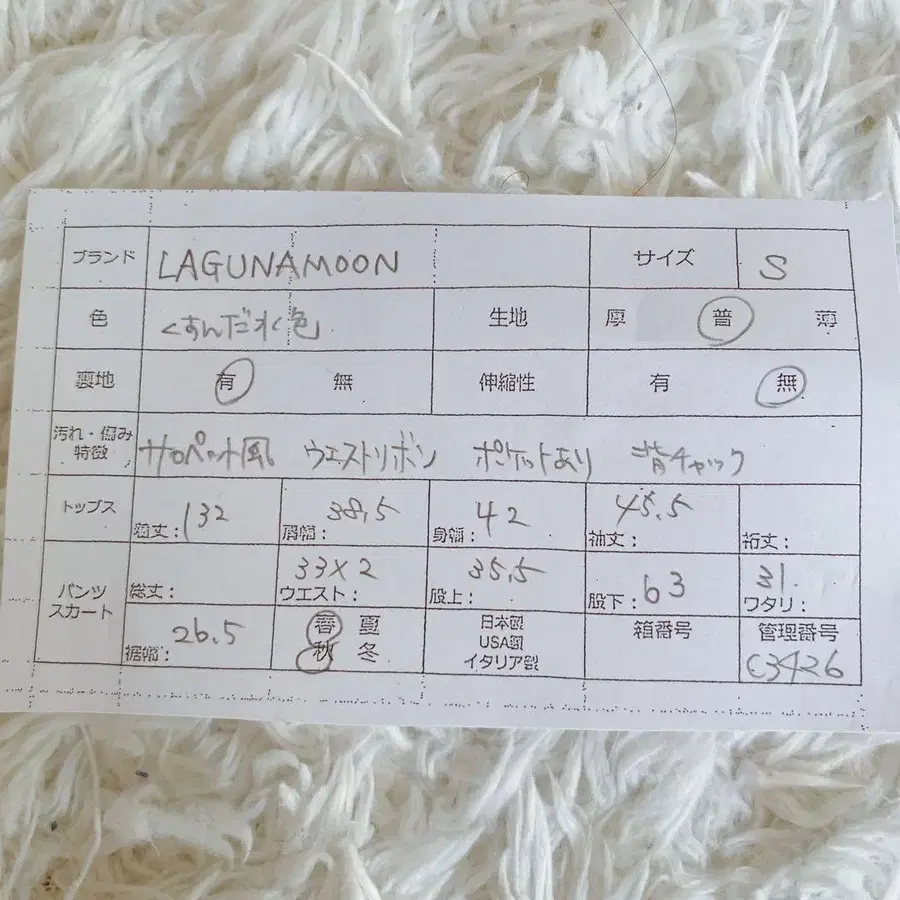 ブランド LAGUNAMOON サイズ S
色 くすんだ水色 生地 厚 普 薄
裏地 有 無 伸縮性 有 無
汚れ・傷み
特徴 サロペット風 ウエストリボン ポケットあり 背チャック
トップス 着丈:132 肩幅:38.5 身幅:42 袖丈:45.5 裄丈:
パンツ
スカート 総丈: ウエスト:33×2 股上:35.5 股下:63 ワタリ:31.
裾幅:26.5 春 夏 秋 冬 日本製 USA製 イタリア製 箱番号 管理番号 C3426